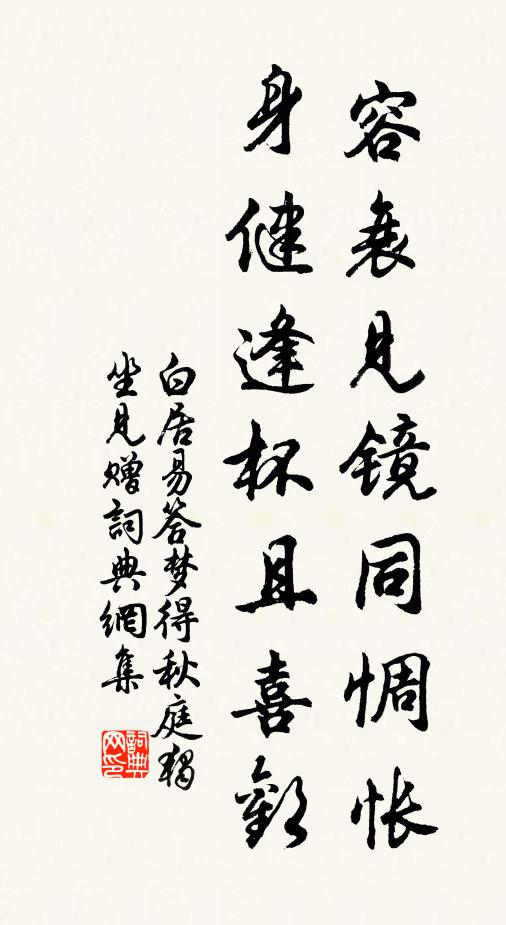 容衰见镜同惆怅
身健逢杯且喜歡
白居易答梦得秋庭獨
坐見赠詞典網集
詞典网印